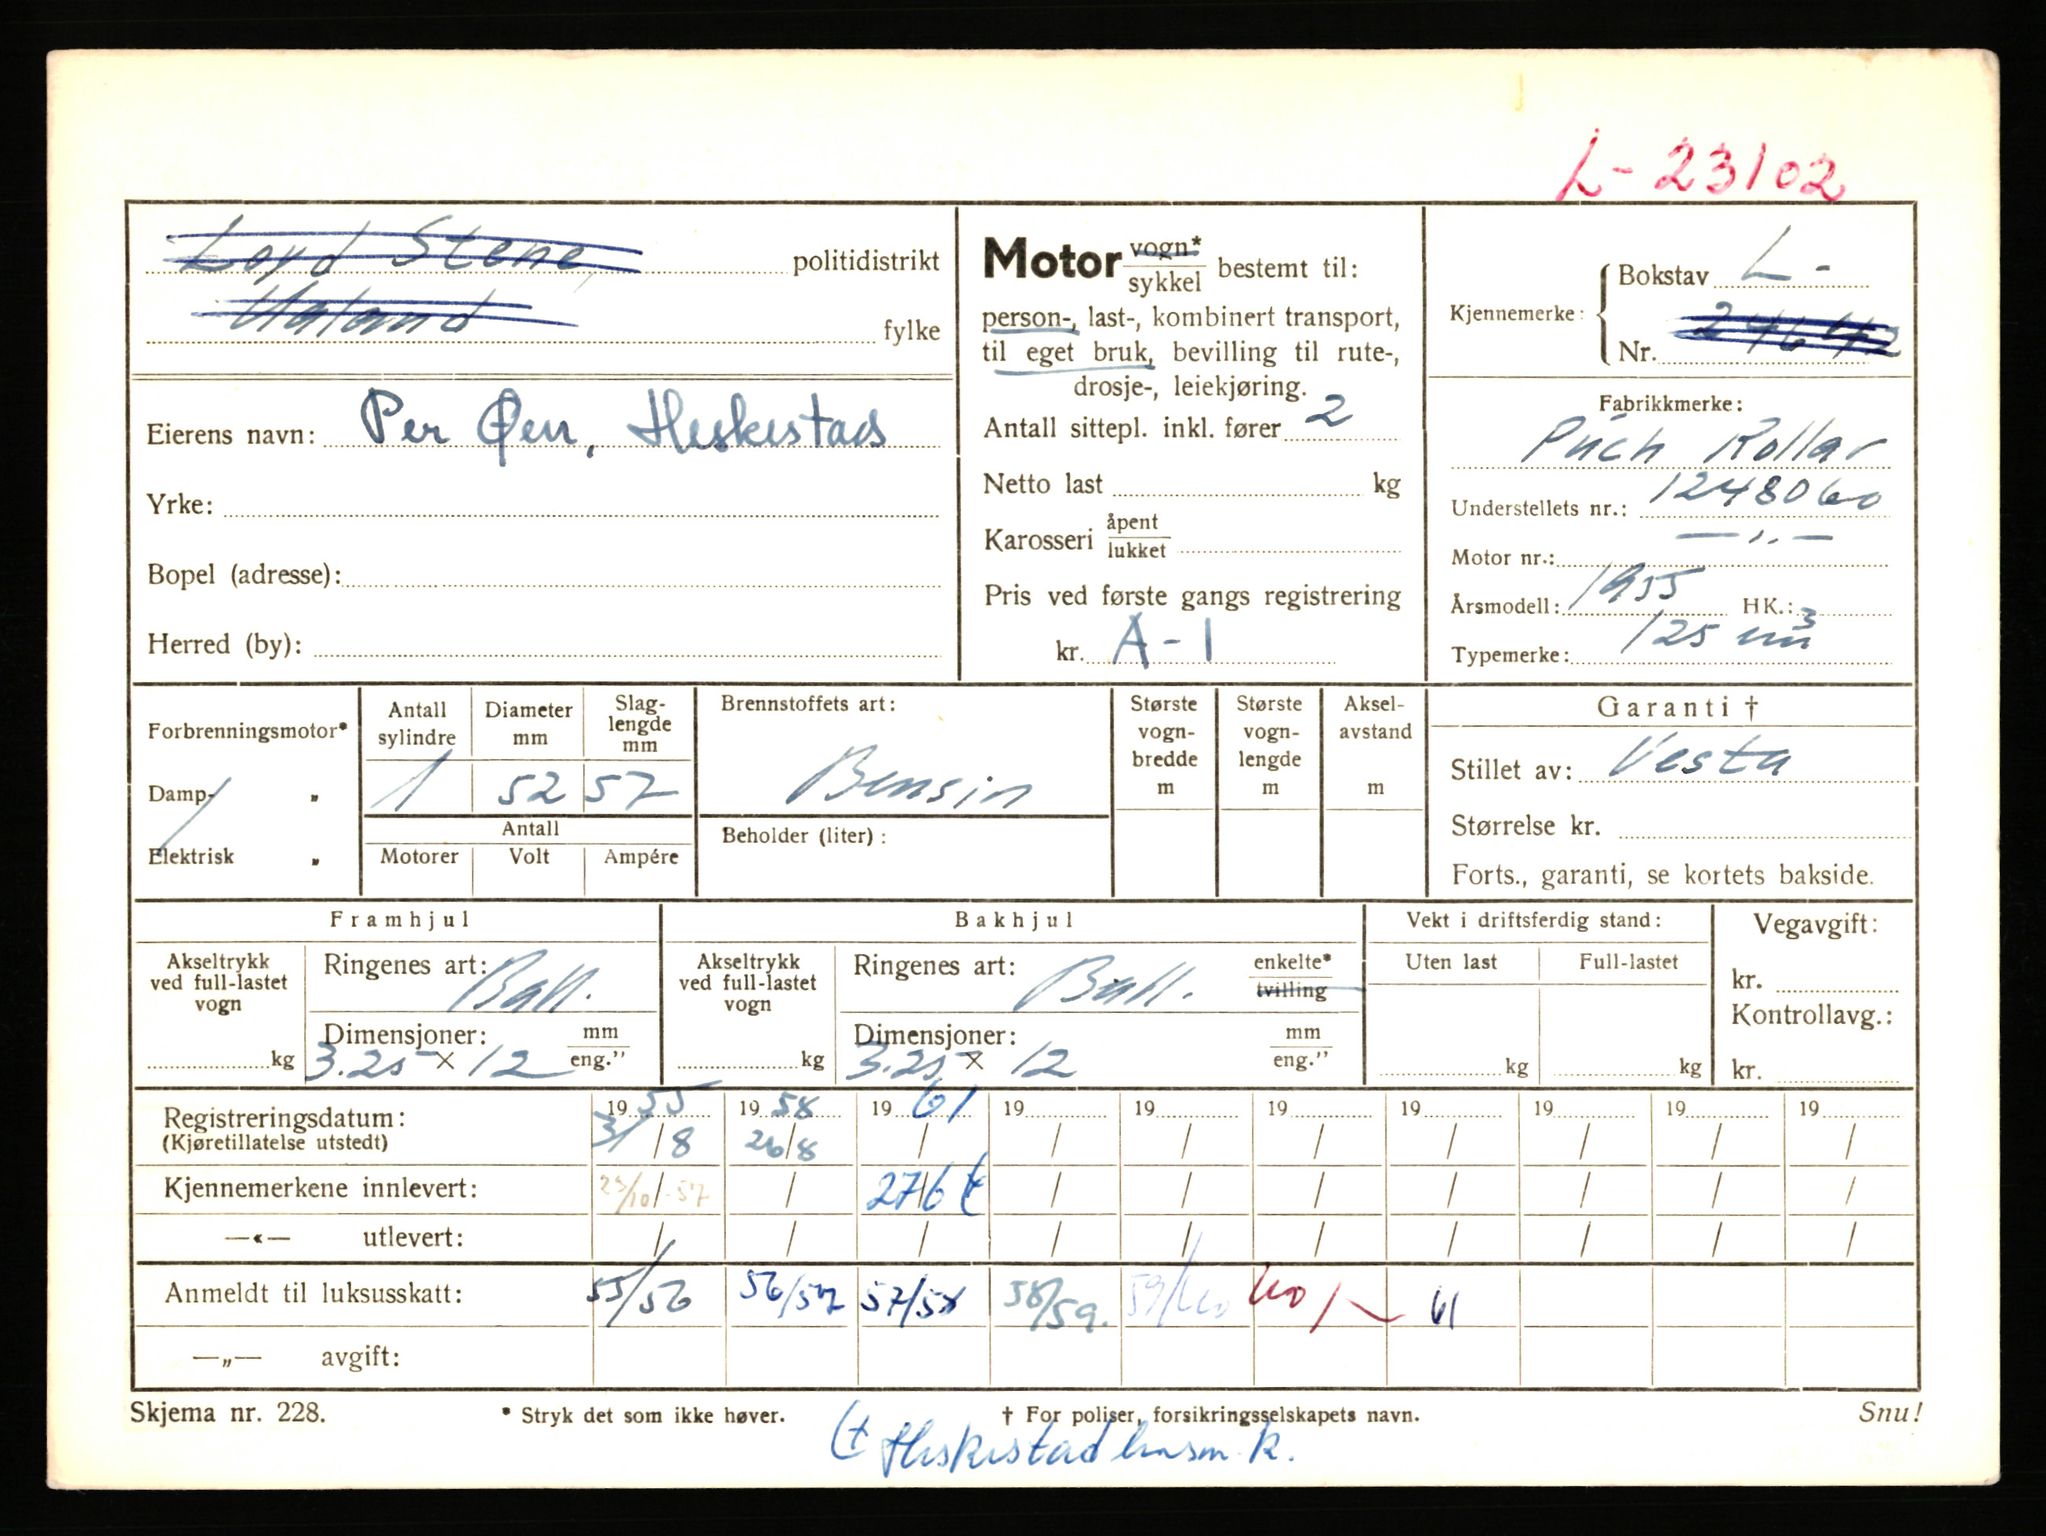 L-23102
Loyd Stene, politidistrikt
Ualand fylke
Eierens navn: Per Øen, Heskestad
Yrke:
Bopel (adresse):
Herred (by):
Motor vogn* / sykkel bestemt til:
person-, last-, kombinert transport,
til eget bruk, bevilling til rute-,
drosje-, leiekjøring.
Antall sittepl. inkl. fører 2
Netto last kg
Karosseri åpent / lukket
Pris ved første gangs registrering
kr. A-1
Kjennemerke: Bokstav L-
Nr. 24642
Fabrikkmerke:
Puch Rollar
Understellets nr.: 1248060
Motor nr.: —,,—
Årsmodell: 1955 HK.:
Typemerke: 125 cm³
Forbrenningsmotor*
Damp- „
Elektrisk „
Antall sylindre Diameter mm Slag-lengde mm
1 52 57
Antall
Motorer Volt Ampére
Brennstoffets art:
Bensin
Beholder (liter):
Største vogn-bredde m
Største vogn-lengde m
Aksel-avstand m
Garanti †
Stillet av: Vesta
Størrelse kr.
Forts., garanti, se kortets bakside.
Framhjul
Akseltrykk ved full-lastet vogn
kg
Ringenes art: Ball.
Dimensjoner: mm / eng.”
3.25 x 12
Bakhjul
Akseltrykk ved full-lastet vogn
kg
Ringenes art: Ball. enkelte* / tvilling
Dimensjoner: mm / eng.”
3.25 x 12
Vekt i driftsferdig stand:
Uten last Full-lastet
kg kg
Vegavgift:
kr.
Kontrollavg.:
kr.
Registreringsdatum: 19 55 19 58 19 61 19 19 19 19 19 19 19
(Kjøretillatelse utstedt) 31/8 26/8 / / / / / / / /
Kjennemerkene innlevert: 23/10-57 / 27/6 / / / / / / /
—«— utlevert: / / / / / / / / / /
Anmeldt til luksusskatt: 55/56 56/57 57/58 58/59. 59/60 60/ 61
—„— avgift:
Skjema nr. 228.
* Stryk det som ikke høver.
† For poliser, forsikringsselskapets navn.
Snu!
Heskestad lensm. k.